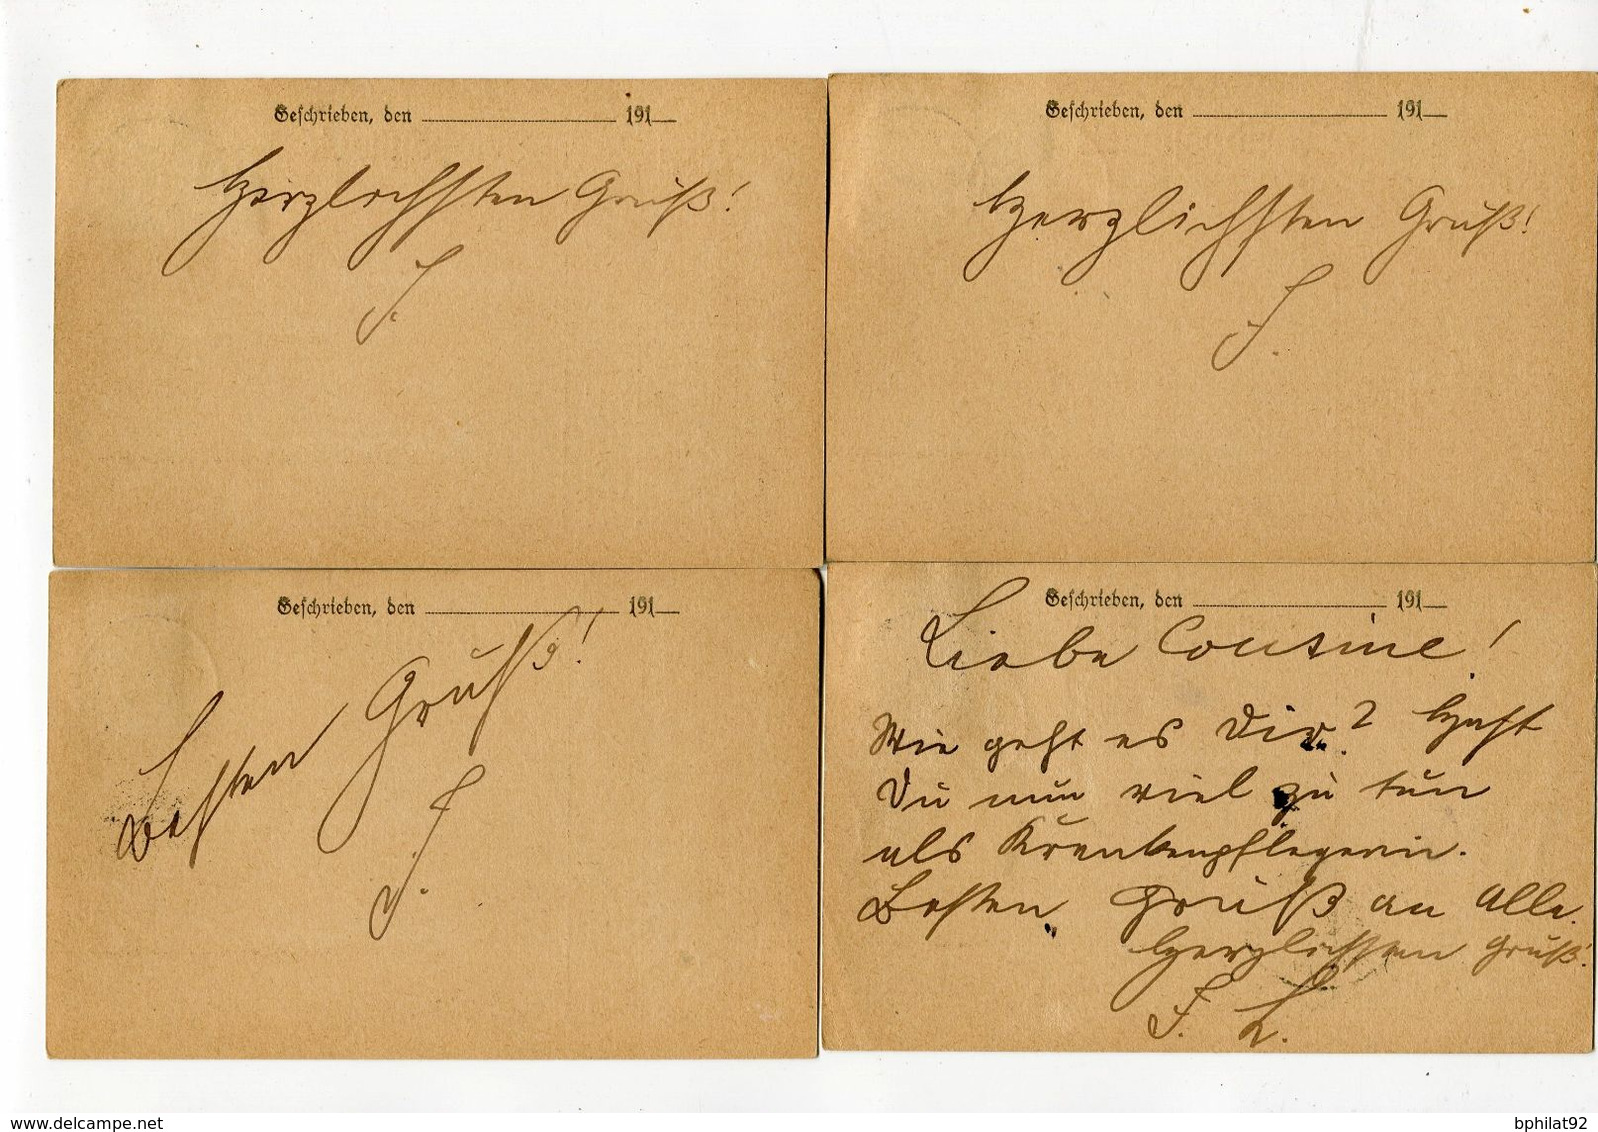 Geschrieben, den 191
Herzlichsten Gruß!
F.
Geschrieben, den 191
Herzlichsten Gruß!
F.
Geschrieben, den 191
Besten Gruß!
F.
Geschrieben, den 191
Liebe Cousine!
Wie geht es Dir? Hast
Du nun viel zu tun
als Krankenpflegerin.
Besten Gruß an Alle.
Herzlichsten Gruß!
F. L.
delcampe.net
bphilat92